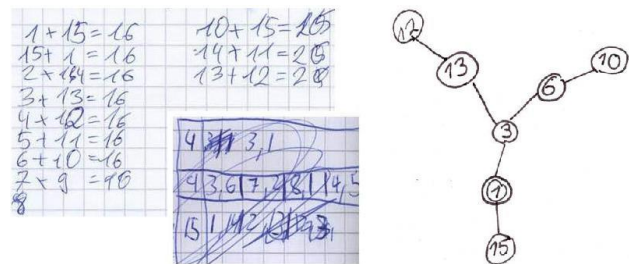 1+15=16
15+1=16
2+14=16
3+13=16
4+12=16
5+11=16
6+10=16
7+9=16
8
10+15=25
14+11=25
13+12=25
4 3,1
4 3,6 7,2 8,1 4,5
15 1,14 2,
12
13
6
10
3
1
15